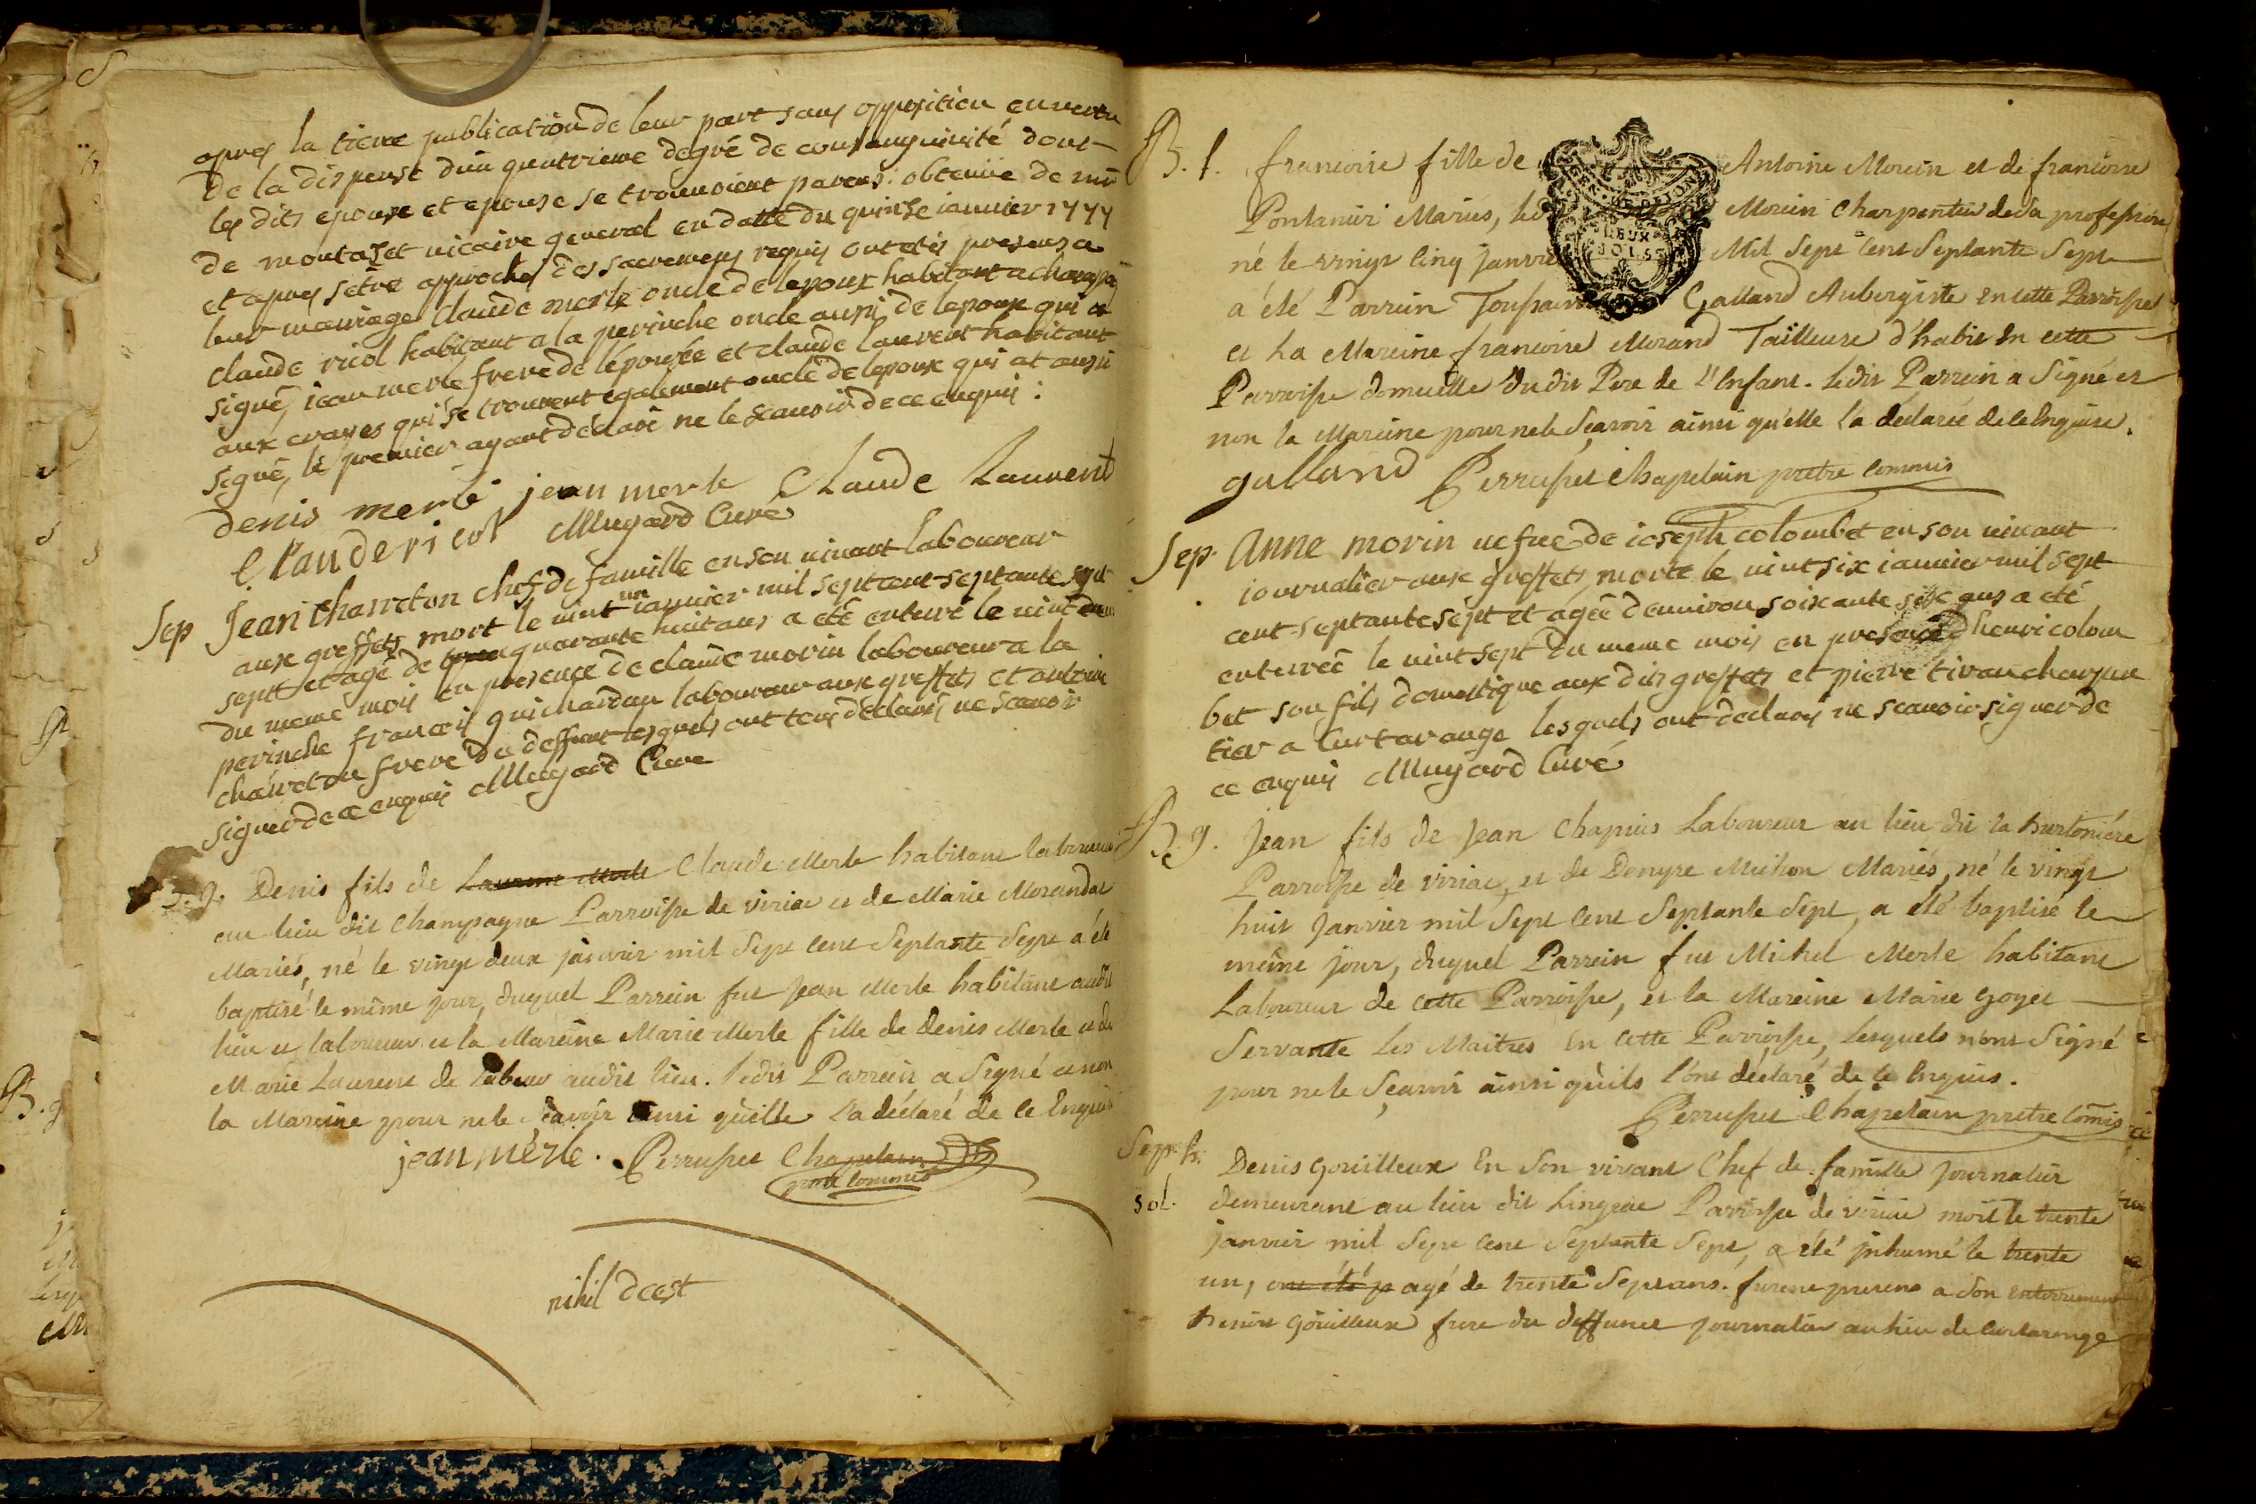 apres la tierce publication de leur part sans opposition en vertu
de la dispense d'un quatrieme degré de consanguinité dont
les dits epoux et epouse se trouvoient parens: obtenüe de mr
de montazet vicaire general en datte du quinze ianvier 1777
et apres s'etre approchés des sacremens requis ont etés presens a
leur mariage Claude merle oncle de l'epoux habitant a champagne
claude ricol habitant a la perinche oncle aussi de l'epoux qui a
signé, iean merle frere de l'épousée et claude laurent habitant
aux crayes qui se trouvent egalement oncle de lepoux qui at aussi
signé, le premier ayant déclaré ne le scauoir de ce enquis:
denis merle jean merle Claude Laurent
Claude ricol Mugard Curé
Sep Jean Charreton chef de famille en son uiuant laboureur
aux greffets mort le uint un ianuier mil sept cent septante sept
sept et agé de quarante huit ans a été enterré le uint deux
du meme mois en presence de claude morin laboureur a la
perinche francois guichardan laboureur aux greffets et antoine
charreton frere du deffunt lesquels ont tous déclarés ne scauoir
signer de ce enquis Mugard Cure
B. g. Denis fils de Laurent Merle Claude Merle habitant laboureur
au lieu dit Champagne Parroisse de viriac et de Marie Morandat
Mariés, né le vingt deux janvier mil sept cent septante sept a été
baptisé le même jour, duquel Parrein fut Jean Merle habitant audit
lieu et laboureur et la Mareine Marie Merle fille de Denis Merle et de
Marie Laurent de audit lieu. ledit Parrein a Signé et non
la Mareine pour ne le sçavoir ainsi qu'elle l'a déclaré de ce Enquis
jean merle. Perrusset Chapelain
prêtre commis
nihil deest
B. f. francoise fille de Antoine Morin et de francoise
Pontanier Mariés, led Morin Charpentier de sa profession
né le vingt cinq janvier Mil Sept Cent Septante Sept
a été Parrein Toussaint Galland Aubergiste en cette Parroisse
et La Mareine francoise Morand Tailleuse d'habit en cette
Parroisse domicille dudit Pere de l'Enfant. ledit Parrein a Signé et
non la Mareine pour ne le Sçavoir ainsi qu'elle l'a declarée de ce Enquise.
galland Perrusset Chapelain prêtre commis
Sep. Anne morin uefue de ioseph colombet en son uiuant
iournalier aux greffets, morte le uint six ianuier mil sept
cent-septante sept et agée d'enuiron soixante six ans a été
enterrée le uint sept du meme mois en presence d'henri colom
bet son fils domestique aux dits greffets et pierre tiran charpen
tier a Curtarange lesquels ont declarés ne scauoir signer de
ce enquis Mugard Curé
B. g. Jean fils de Jean Chapuis Laboureur au lieu dit la burtoniére
Parroisse de viriac, et de Denyse Michon Mariés, né le vingt
huit Janvier mil Sept Cent Septante Sept, a été baptisé le
même jour, duquel Parrein fut Michel Merle habitant
Laboureur de cette Parroisse, et la Mareine Marie Goyet
Servante les Maîtres En Cette Parroisse, lesquels n'ont Signé
pour ne le Sçavoir ainsi qu'ils l'ont déclaré de ce Enquis.
Perrusset Chapelain prêtre Comis
Sep. h. Denis Goüilleux En Son vivant Chef de famille Journalier
sol. demeurant au lieu dit Lingeat Parroisse de viriac mort le trente
janvier mil Sept Cent Septante Sept, a été inhumé le trente
un, ont été p agé de trente Sept ans. furent presens a Son enterrement
benoit Goüilleux frere du deffunct journalier au lieu de Curtarange